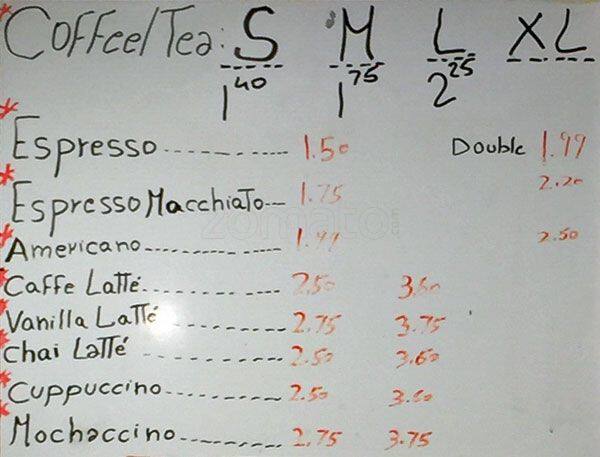 Coffee/Tea: S M L XL
1 40 1 75 2 25
Espresso 1.50 Double 1.99
Espresso Macchiato 1.75 2.20
Americano 1.99 2.50
Caffe Latté 2.50 3.60
Vanilla Latté 2.75 3.75
Chai Latté 2.50 3.60
Cuppuccino 2.50 3.60
Mochaccino 2.75 3.75
zomato